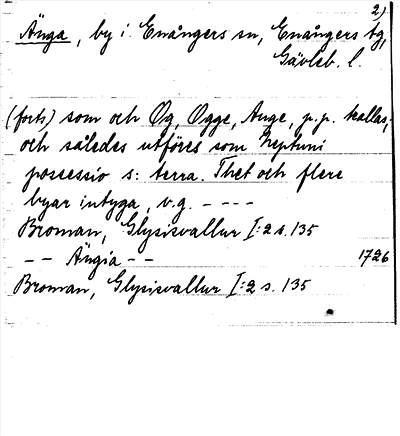 2)
Änga, by i Enångers sn, Enångers tg,
Gävleb. l.
(forts) som och Øg, Ogge, Auge, p.p. kallas;
och således utföres som Neptuni
possessio s: terra. Thet och flere
byar intyga, v.g. - - - -
Broman, Glysisvallur I:2 s. 135
- - Ängia - - 1726
Broman, Glysisvallur I:2 s. 135